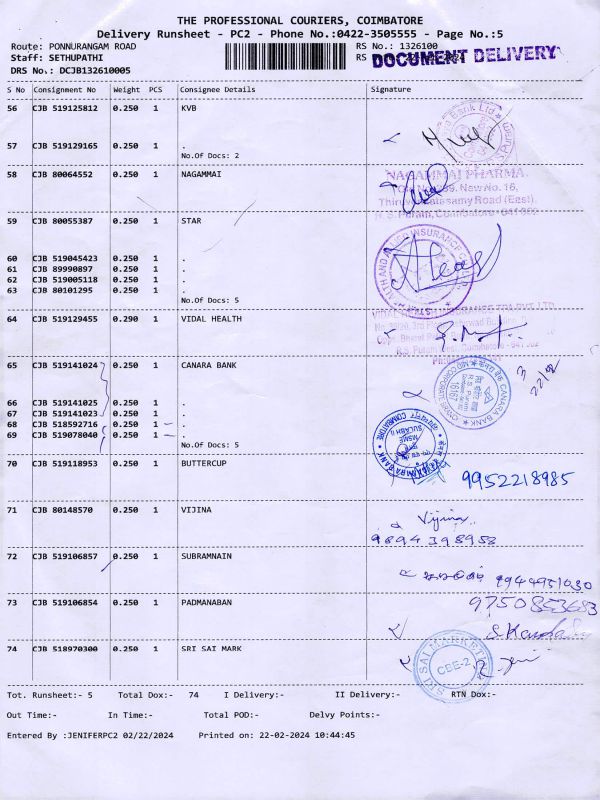 THE PROFESSIONAL COURIERS, COIMBATORE
Delivery Runsheet - PC2 - Phone No.:0422-3505555 - Page No.:5
Route: PONNURANGAM ROAD
RS No.: 1326100
Staff: SETHUPATHI
RS
DOCUMENT DELIVERY
DRS No.: DCJB132610005
S No Consignment No Weight PCS Consignee Details Signature
56 CJB 519125812 0.250 1 KVB
57 CJB 519129165 0.250 1 .
No.Of Docs: 2
58 CJB 80064552 0.250 1 NAGAMMAI
NAGAMMAI PHARMA.
New No. 16,
(East),
R.S. Puram, Coimbatore - 641 002
59 CJB 80055387 0.250 1 STAR
60 CJB 519045423 0.250 1 .
61 CJB 89990897 0.250 1 .
62 CJB 519005118 0.250 1 .
63 CJB 80101295 0.250 1 .
No.Of Docs: 5
64 CJB 519129455 0.290 1 VIDAL HEALTH
65 CJB 519141024 0.250 1 CANARA BANK
22/02
66 CJB 519141025 0.250 1 .
67 CJB 519141023 0.250 1 .
68 CJB 518592716 0.250 1 .
69 CJB 519078040 0.250 1 .
No.Of Docs: 5
CANARA BANK
70 CJB 519118953 0.250 1 BUTTERCUP
9952218985
71 CJB 80148570 0.250 1 VIJINA
Vijina
9894398953
72 CJB 519106857 0.250 1 SUBRAMNAIN
9944951030
73 CJB 519106854 0.250 1 PADMANABAN
9750853683
74 CJB 518970300 0.250 1 SRI SAI MARK
SRI SAI MARKETING
CBE-2
Tot. Runsheet:- 5 Total Dox:- 74 I Delivery:- II Delivery:- RTN Dox:-
Out Time:- In Time:- Total POD:- Delvy Points:-
Entered By :JENIFERPC2 02/22/2024 Printed on: 22-02-2024 10:44:45